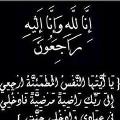 إِنَّا لِلَّهِ وَإِنَّا إِلَيْهِ
رَاجِعُونَ
{يَا أَيَّتُهَا النَّفْسُ الْمُطْمَئِنَّةُ ارْجِعِي
إِلَى رَبِّكِ رَاضِيَةً مَرْضِيَّةً فَادْخُلِي
فِي عِبَادِي وَادْخُلِي جَنَّتِي}